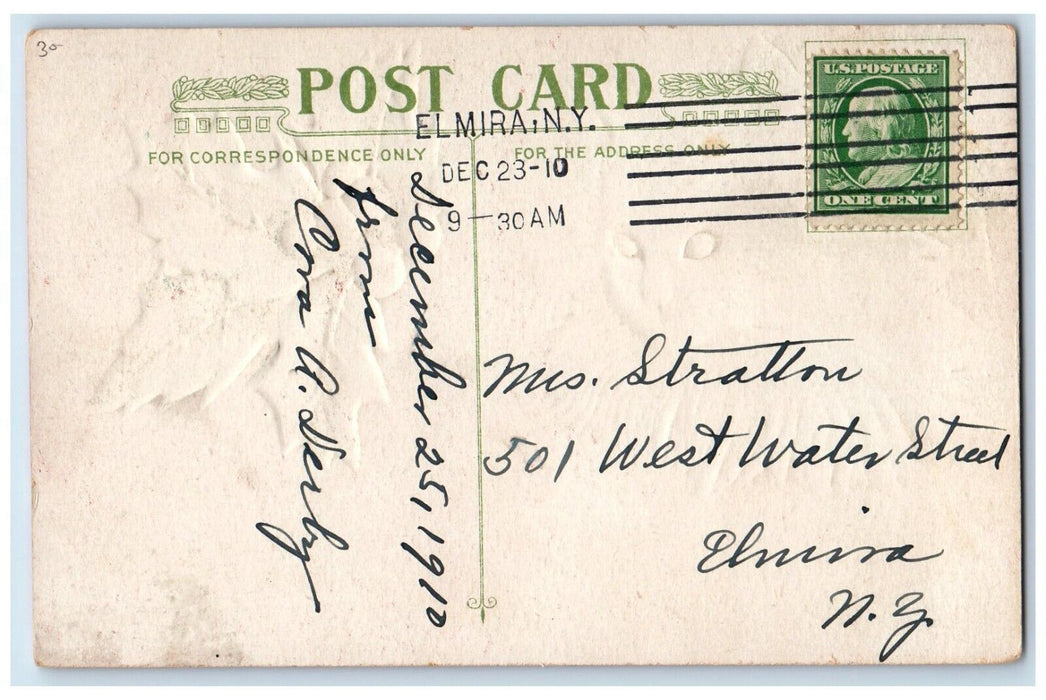 30
POST CARD
FOR CORRESPONDENCE ONLY
FOR THE ADDRESS ONLY
ELMIRA, N.Y.
DEC 23-10
9-30AM
U.S. POSTAGE
ONE CENT
December 25, 1910
from
A. Derby
Mrs. Stratton
501 West Water Street
Elmira
N.Y.